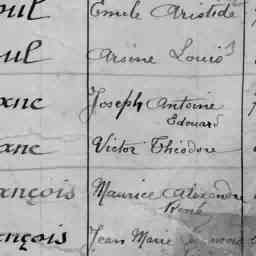 oul Emile Aristide
oul Arsène Louis
anc Joseph Antoine
Edouard
anc Victor Théodore
ançois Maurice Alexandre
René
ançois Jean Marie